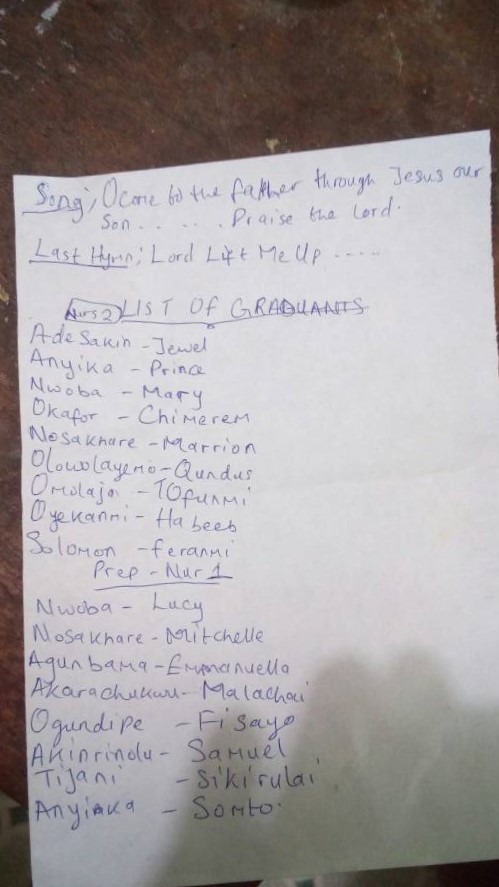 Song; O come to the father through Jesus our
Son . . . . . . Praise the Lord.
Last Hymn; Lord Lift Me Up .....
Nurs 2 LIST OF GRADUANTS
Ade Sakin - Jewel
Anyika - Prince
Nwoba - Mary
Okafor - Chimerem
Nosakhare - Marrion
Olowolayemo - Qundus
Omolaja - TOfunmi
Oyekanmi - Habeeb
Solomon - feranmi
Prep - Nur 1
Nwoba - Lucy
Nosakhare - Mitchelle
Agunbama - Emmanuella
Akarachukwu - Malachai
Ogundipe - Fisayo
Akinrindu - Samuel
Tijani - Sikirulai
Anyiaka - Somto.